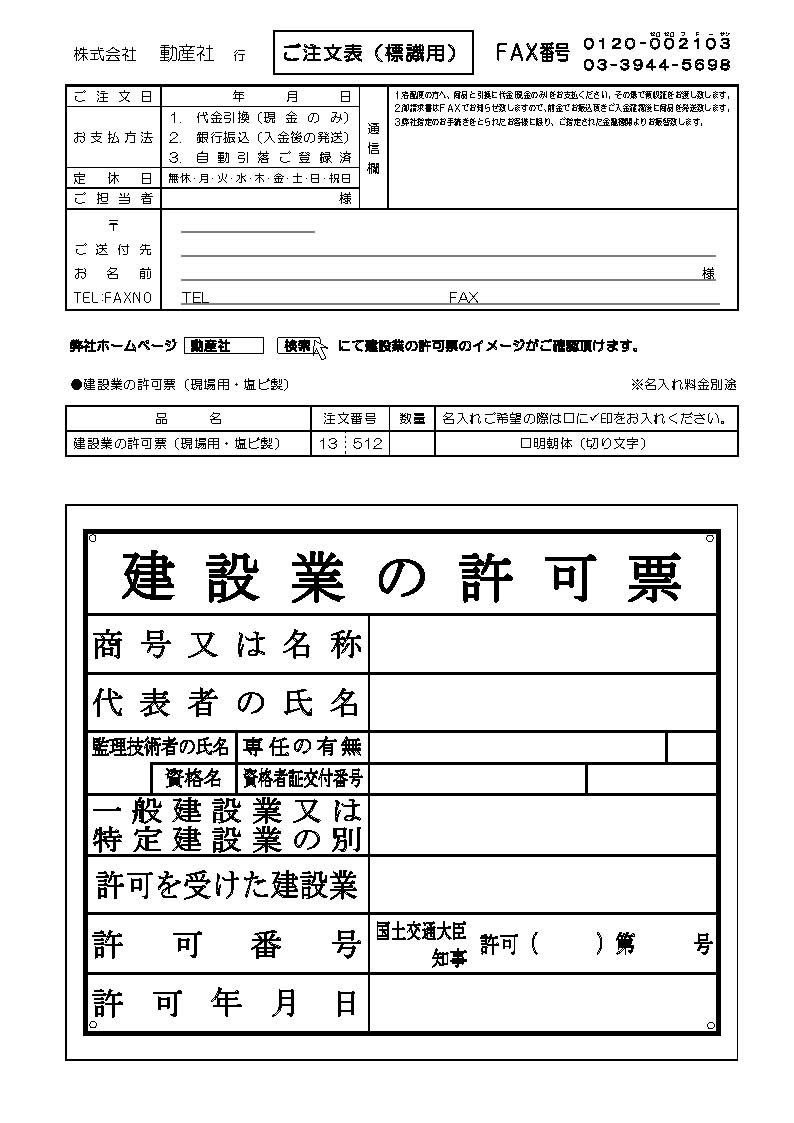 株式会社 動産社 行 ご注文表（標識用） FAX番号 0120-002103
03-3944-5698
ご注文日 年 月 日
お支払方法 1. 代金引換（現金のみ）
2. 銀行振込（入金後の発送）
3. 自動引落ご登録済
定休日 無休・月・火・水・木・金・土・日・祝日
ご担当者 様
通信欄
1.宅配便の方へ、商品と引換に代金(現金のみ)をお支払ください。その場で領収証をお渡し致します。
2.御請求書はFAXでお知らせ致しますので、前金でお振込頂きご入金確認後に商品を発送致します。
3.弊社指定のお手続きをとられたお客様に限り、ご指定された金融機関よりお振替致します。
〒
ご送付先
お名前 様
TEL:FAXNO TEL FAX
弊社ホームページ 動産社 検索 にて建設業の許可票のイメージがご確認頂けます。
●建設業の許可票（現場用・塩ビ製） ※名入れ料金別途
品名 注文番号 数量 名入れご希望の際は□に✓印をお入れください。
建設業の許可票（現場用・塩ビ製） 13 512 □明朝体（切り文字）
建設業の許可票
商号又は名称
代表者の氏名
監理技術者の氏名 専任の有無
資格名 資格者証交付番号
一般建設業又は
特定建設業の別
許可を受けた建設業
許可番号 国土交通大臣
知事 許可（ ）第 号
許可年月日